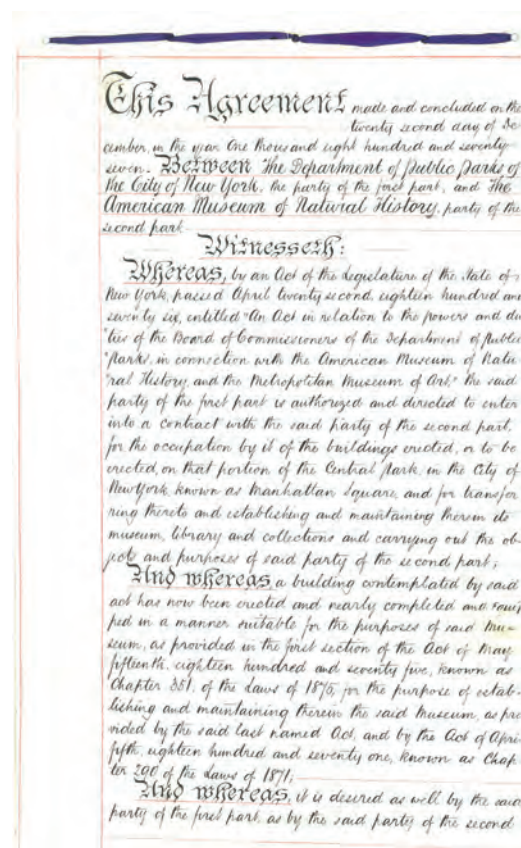 This Agreement made and concluded on the
twenty second day of De
cember, in the year One thousand eight hundred and seventy
seven. Between The Department of Public Parks of
the City of New York, the party of the first part, and The
American Museum of Natural History, party of the
second part
Witnesseth:
Whereas, by an Act of the Legislature of the State of
New York, passed April twenty second, eighteen hundred and
seventy six, entitled "An Act in relation to the powers and du
"ties of the Board of Commissioners of the Department of Public
"Parks, in connection with the American Museum of Natu
"ral History, and the Metropolitan Museum of Art," the said
party of the first part is authorized and directed to enter
into a contract with the said party of the second part,
for the occupation by it of the buildings erected, or to be
erected, on that portion of the Central Park, in the City of
New York, known as Manhattan Square, and for transfer
ring thereto and establishing and maintaining therein its
museum, library and collections and carrying out the ob-
jects and purposes of said party of the second part;
And whereas, a building contemplated by said
act has now been erected and nearly completed and equip
ped in a manner suitable for the purposes of said Mu-
seum, as provided in the first section of the Act of May
fifteenth, eighteen hundred and seventy five, known as
Chapter 351, of the Laws of 1875, for the purpose of estab-
lishing and maintaining therein the said Museum, as pro
vided by the said last named Act, and by the Act of April
fifth, eighteen hundred and seventy one, known as Chap
ter 290 of the Laws of 1871;
And whereas, it is desired as well by the said
party of the first part, as by the said party of the second